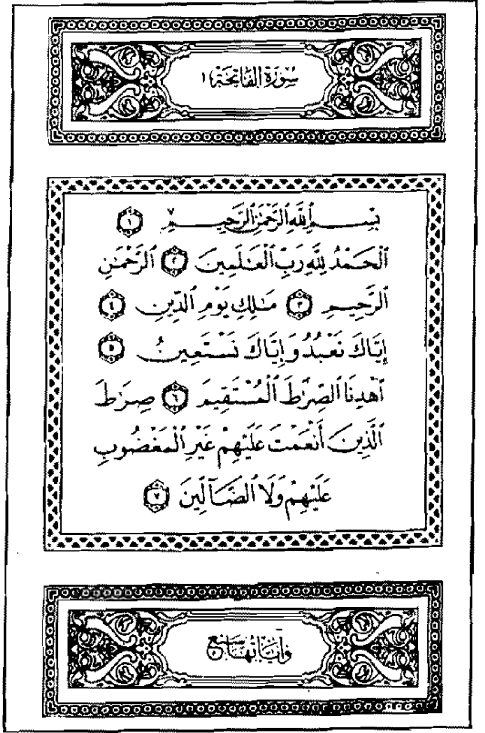 سُورَةُ الفَاتِحَةِ ١
بِسْمِ ٱللَّهِ ٱلرَّحْمَٰنِ ٱلرَّحِيمِ ١
ٱلْحَمْدُ لِلَّهِ رَبِّ ٱلْعَٰلَمِينَ ٢ ٱلرَّحْمَٰنِ
ٱلرَّحِيمِ ٣ مَٰلِكِ يَوْمِ ٱلدِّينِ ٤
إِيَّاكَ نَعْبُدُ وَإِيَّاكَ نَسْتَعِينُ ٥
ٱهْدِنَا ٱلصِّرَٰطَ ٱلْمُسْتَقِيمَ ٦ صِرَٰطَ
ٱلَّذِينَ أَنْعَمْتَ عَلَيْهِمْ غَيْرِ ٱلْمَغْضُوبِ
عَلَيْهِمْ وَلَا ٱلضَّآلِّينَ ٧
وَآيَاتُهَا سَبْعٌ